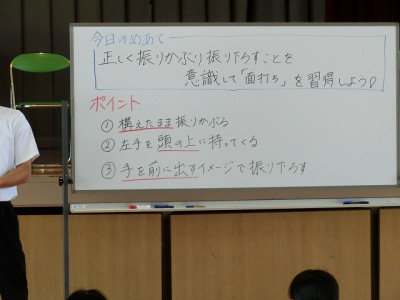 今日のめあて
正しく振りかぶり振り下ろすことを
意識して「面打ち」を習得しよう♪
ポイント
① 構えたまま振りかぶる
② 左手を頭の上に持ってくる
③ 手を前に出すイメージで振り下ろす